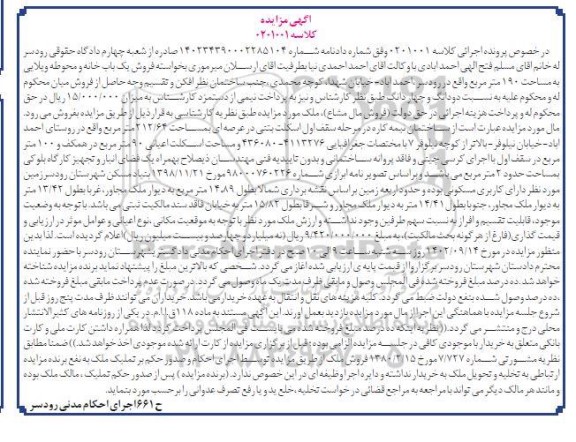 آگهی مزایده
کلاسه ۰۲۰۱۰۰۱
در خصوص پرونده اجرائی کلاسه ۰۲۰۱۰۰۱ وفق شماره دادنامه شماره ۱۴۰۲۳۴۳۹۰۰۰۲۲۸۵۱۰۴ صادره از شعبه چهارم دادگاه حقوقی رودسر
له خانم اقای مسلم فتح الهی احمد ابادی با وکالت اقای احمد احمدی نیا بطرفیت اقای ارسلان میرموری بخواسته فروش یک باب خانه و محوطه ویلایی
به مساحت ۱۹۰ متر مربع واقع در رودسر احمد اباد- خیابان شهدا، کوچه محمدی، جنب ساختمان نظر افکن و تقسیم وجه حاصل از فروش میان محکوم
له و محکوم علیه به نسبت دو دانگ و چهار دانگ طبق نظر کارشناس و نیز به پرداخت نیمی از دستمزد کارشناس به میزان ۱۵/۰۰۰/۰۰۰ ریال در حق
محکوم له و پرداخت هزینه اجرائی در حق دولت (فروش مال مشاع)، ملک مورد مزایده طبق نظر به کارشناسی به قرار ذیل از طریق مزایده بفروش می رود.
مال مورد مزایده عبارت است از ساختمان نیمه کاره در مرحله سقف اول اسکلت بتنی در عرصه ای بمساحت ۲۱۲/۶۴ متر مربع واقع در روستای احمد
اباد-خیابان نیلوفر -بالاتر از کوچه نیلوفر ۷ با مختصات جغرافیایی ۴۱۱۳۲۷۶-۴۳۶۰۸۰ و مساحت اسکلت اعیانی ۹۰ متر مربع در همکف و ۱۰۰ متر
مربع در سقف اول با اجرای کرسی چینی و فاقد پروانه ساختمانی و بدون تاییدیه فنی مهندسان ذیصلاح بهمراه یک فضای انبار و تجهیز کارگاه بلوکی
بمساحت حدود ۲ متر مربع می باشد و براساس تصویر نامه ابرازی شماره ۹۸۰۰۰۷۶۰۲۲۶ مورخ ۱۳۹۸/۱۱/۲۱ بنیاد مسکن شهرستان رودسر زمین
مورد نظر دارای کاربری مسکونی بوده و حدود اربعه زمین براساس نقشه برداری شمالا بطول ۱۴/۸۹ متر مربع به دیوار ملک مجاور، غربا بطول ۱۳/۴۲ متر
به دیوار ملک مجاور، جنوبا بطول ۱۴/۴۱ متر به دیوار ملک مجاور و شرقا بطول ۱۵/۸۲ متر به خیابان فاقد سند مالکیت ثبتی می باشد. با توجه به وضعیت
موجود، قابلیت تقسیم و افراز به نسبت سهم طرفین وجود نداشته و ارزش ملک مورد نظر با توجه به موقعیت مکانی، نوع اعیانی و عوامل موثر در ارزیابی و
قیمت گذاری (فارغ از هر گونه بحث مالکیت)، به مبلغ ۹/۴۲۰/۰۰۰/۰۰۰ ریال (نه میلیارد و چهارصد و بیست میلیون ریال) اعلام گردیده است. لذا بدین
منظور مزایده در مورخ ۱۴۰۲/۰۹/۱۴ روز سه شنبه ساعت ۹ الی ۱۰ صبح در دفتر اجرای احکام مدنی دادگستری شهرستان رودسر با حضور نماینده
محترم دادستان شهرستان رودسر برگزار و از قیمت پایه ی ارزیابی شده آغاز می گردد. شخصی که بالاترین مبلغ را پیشنهاد نماید برنده مزایده شناخته
خواهد شد. ده درصد مبلغ فروخته شده فی المجلس وصول و مابقی ظرف مدت یک ماه وصول می گردد. در صورت عدم پرداخت مابقی مبلغ فروخته شده
،ده درصد وصول شده بنفع دولت ضبط می گردد. کلیه هزینه های نقل و انتقال به عهده خریدار می باشد. خریداران می توانند ظرف مدت پنج روز قبل از
شروع جلسه مزایده با هماهنگی این اجرا از مال مورد مزایده بازدید بعمل آورند. این آگهی مستند به ماده ۱۱۸ ق.ا.ا.م. در یکی از روزنامه های کثیر الانتشار
محلی درج و منتشر می گردد.((نظر به اینکه ده درصد مبلغ فروخته شده می بایست فی المجلس پرداخت گردد لذا همراه داشتن کارت ملی و کارت
بانکی متعلق به خریدار با موجودی کافی در جلسه مزایده الزامی بوده، قبل از برگزاری مزایده از کارت ارائه شده موجودی اخذ خواهد شد.)) ضمنا مطابق
نظریه مشورتی شماره ۷/۷۲۷ مورخ ۱۳۸۰/۳/۱۵ فروش ملک از طریق مزایده توسط اجرای احکام و صدور حکم بر تملیک ملک به نفع برنده مزایده
ارتباطی به تخلیه و تحویل ملک به خریدار نداشته و دایره اجرا وظیفه ای در این خصوص ندارد. (برنده مزایده) پس از صدور حکم تملیک، مالک ملک بوده
و مانند هر مالک دیگر می تواند با مراجعه به مراجع قضائی درخواست تخلیه، خلع ید و یا رفع تصرف عدوانی را بر حسب مورد بنماید.
ح ۶۶۱ اجرای احکام مدنی رودسر